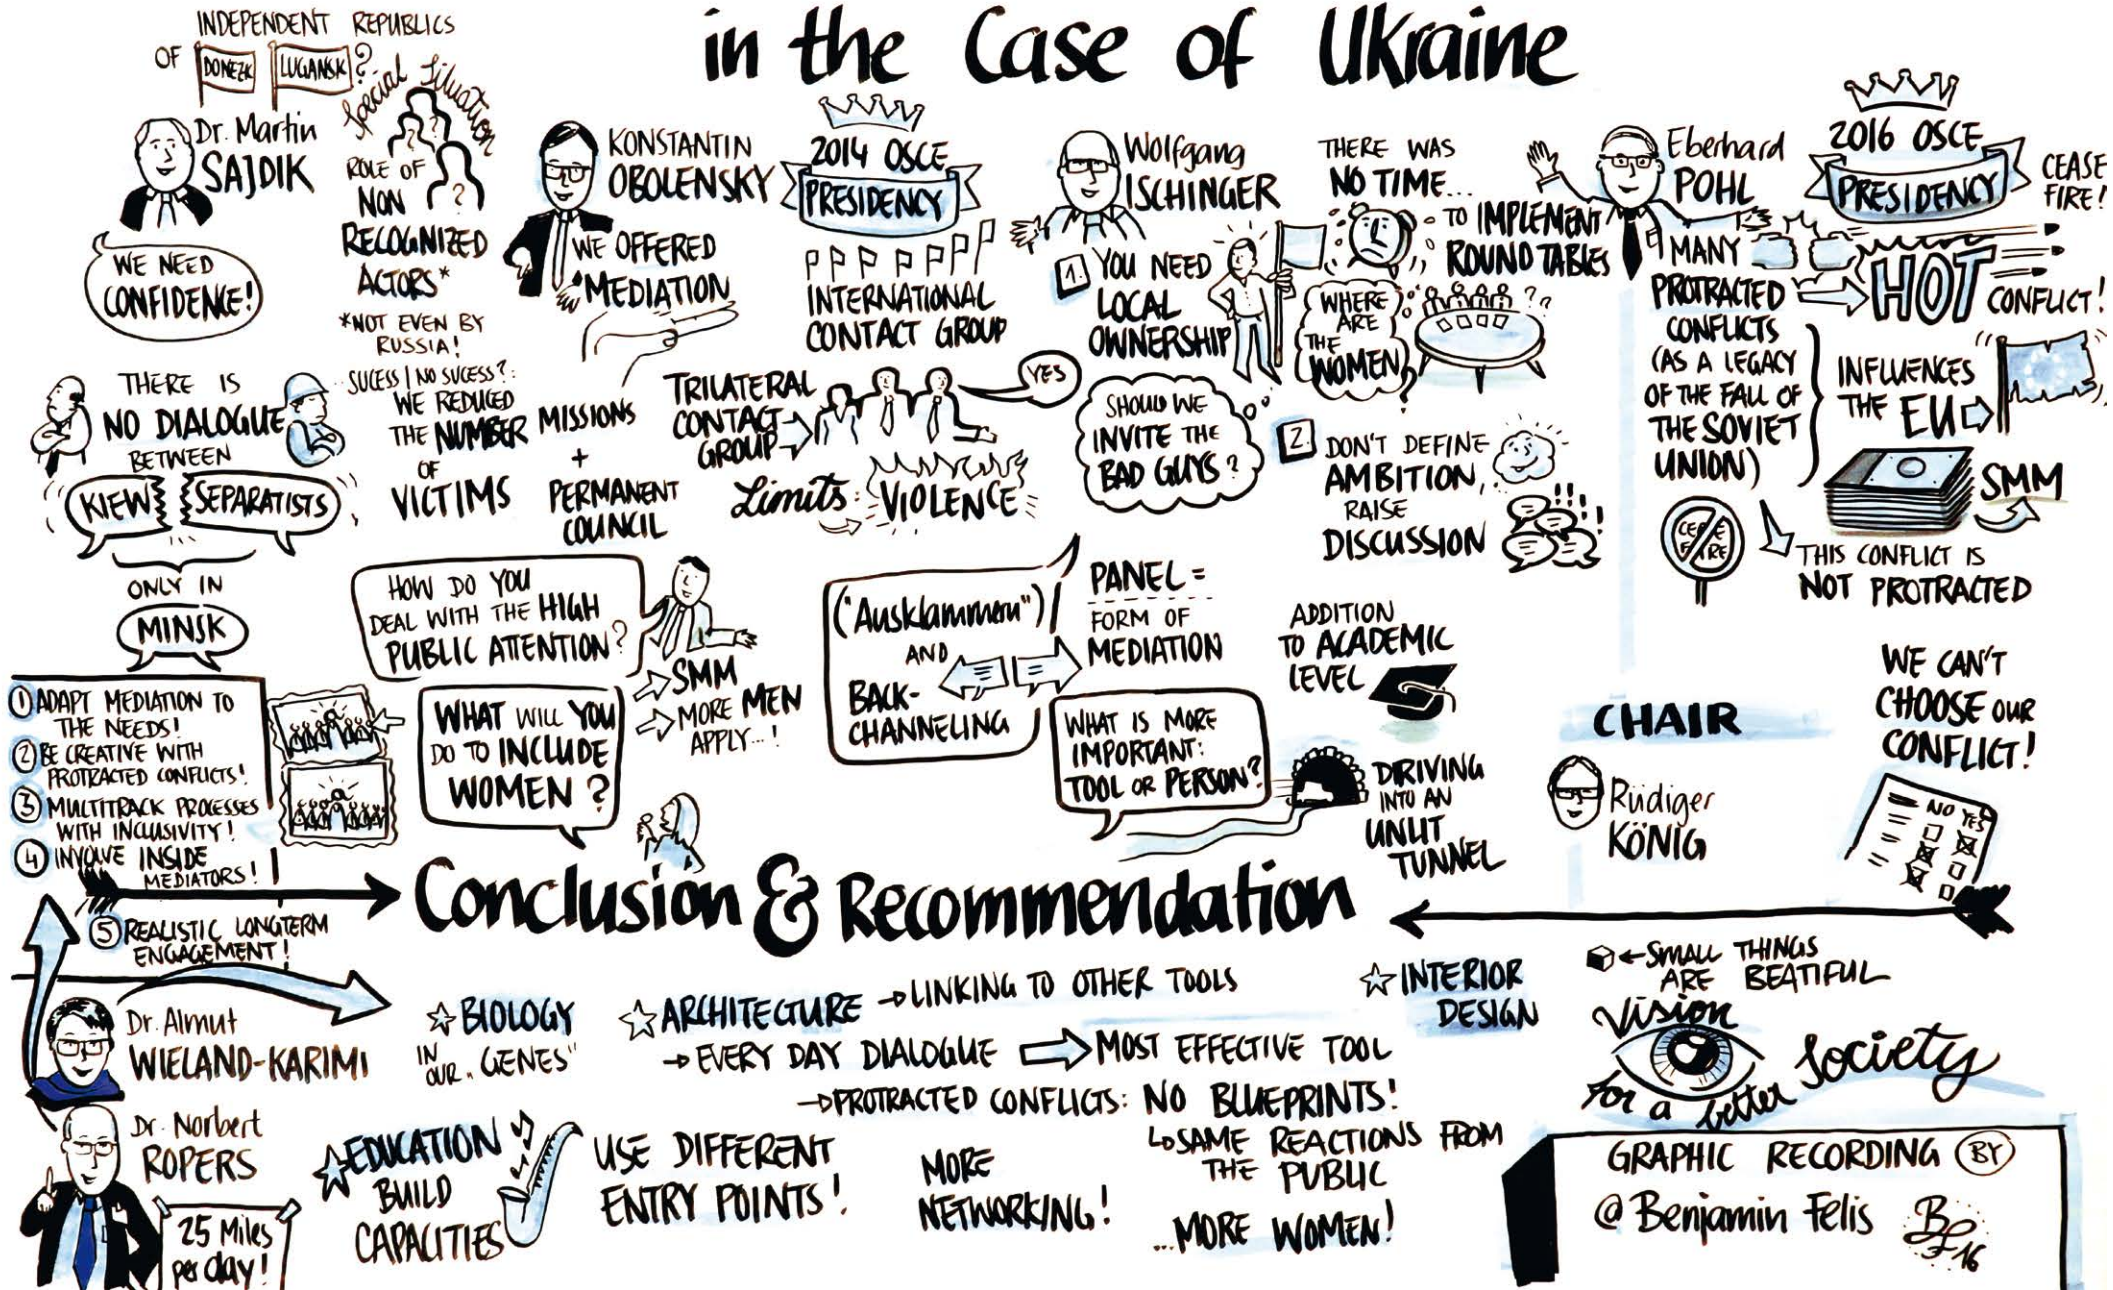 in the Case of Ukraine
INDEPENDENT REPUBLICS
OF DONEZK LUGANSK?
Special Situation
Dr. Martin
SAJDIK
WE NEED
CONFIDENCE!
ROLE OF
NON
RECOGNIZED
ACTORS*
*NOT EVEN BY
RUSSIA!
THERE IS
NO DIALOGUE
BETWEEN
KIEW SEPARATISTS
ONLY IN
MINSK
SUCESS | NO SUCESS?:
WE REDUCED
THE NUMBER
OF
VICTIMS
KONSTANTIN
OBOLENSKY
WE OFFERED
MEDIATION
MISSIONS
+
PERMANENT
COUNCIL
2014 OSCE
PRESIDENCY
INTERNATIONAL
CONTACT GROUP
TRILATERAL
CONTACT
GROUP
YES
Limits: VIOLENCE
Wolfgang
ISCHINGER
1. YOU NEED
LOCAL
OWNERSHIP
SHOULD WE
INVITE THE
BAD GUYS?
THERE WAS
NO TIME...
TO IMPLEMENT
ROUND TABLES
WHERE
ARE
THE
WOMEN?
??
2. DON'T DEFINE
AMBITION,
RAISE
DISCUSSION
!!!!
Eberhard
POHL
MANY
PROTRACTED
CONFLICTS
(AS A LEGACY
OF THE FALL OF
THE SOVIET
UNION)
2016 OSCE
PRESIDENCY
CEASE
FIRE!
HOT CONFLICT!
INFLUENCES
THE EU
SMM
CEASE
FIRE
THIS CONFLICT IS
NOT PROTRACTED
HOW DO YOU
DEAL WITH THE HIGH
PUBLIC ATTENTION?
SMM
MORE MEN
APPLY...!
WHAT WILL YOU
DO TO INCLUDE
WOMEN?
("Ausklammern")
AND
BACK-
CHANNELING
PANEL =
FORM OF
MEDIATION
WHAT IS MORE
IMPORTANT:
TOOL OR PERSON?
ADDITION
TO ACADEMIC
LEVEL
DIRIVING
INTO AN
UNLIT
TUNNEL
CHAIR
Rüdiger
KÖNIG
WE CAN'T
CHOOSE OUR
CONFLICT!
NO YES
1 ADAPT MEDIATION TO
THE NEEDS!
2 BE CREATIVE WITH
PROTRACTED CONFLICTS!
3 MULTITRACK PROCESSES
WITH INCLUSIVITY!
4 INVOLVE INSIDE
MEDIATORS!
5 REALISTIC LONGTERM
ENGAGEMENT!
Conclusion & Recommendation
Dr. Almut
WIELAND-KARIMI
BIOLOGY
IN
OUR „GENES"
ARCHITECTURE → LINKING TO OTHER TOOLS
→ EVERY DAY DIALOGUE ⇒ MOST EFFECTIVE TOOL
→ PROTRACTED CONFLICTS: NO BLUEPRINTS!
↳ SAME REACTIONS FROM
THE PUBLIC
...MORE WOMEN!
INTERIOR
DESIGN
← SMALL THINGS
ARE BEATIFUL
Vision
for a better Society
Dr. Norbert
ROPERS
25 Miles
per day!
EDUCATION
BUILD
CAPACITIES
USE DIFFERENT
ENTRY POINTS!
MORE
NETWORKING!
GRAPHIC RECORDING BY
@ Benjamin Felis
BF 16